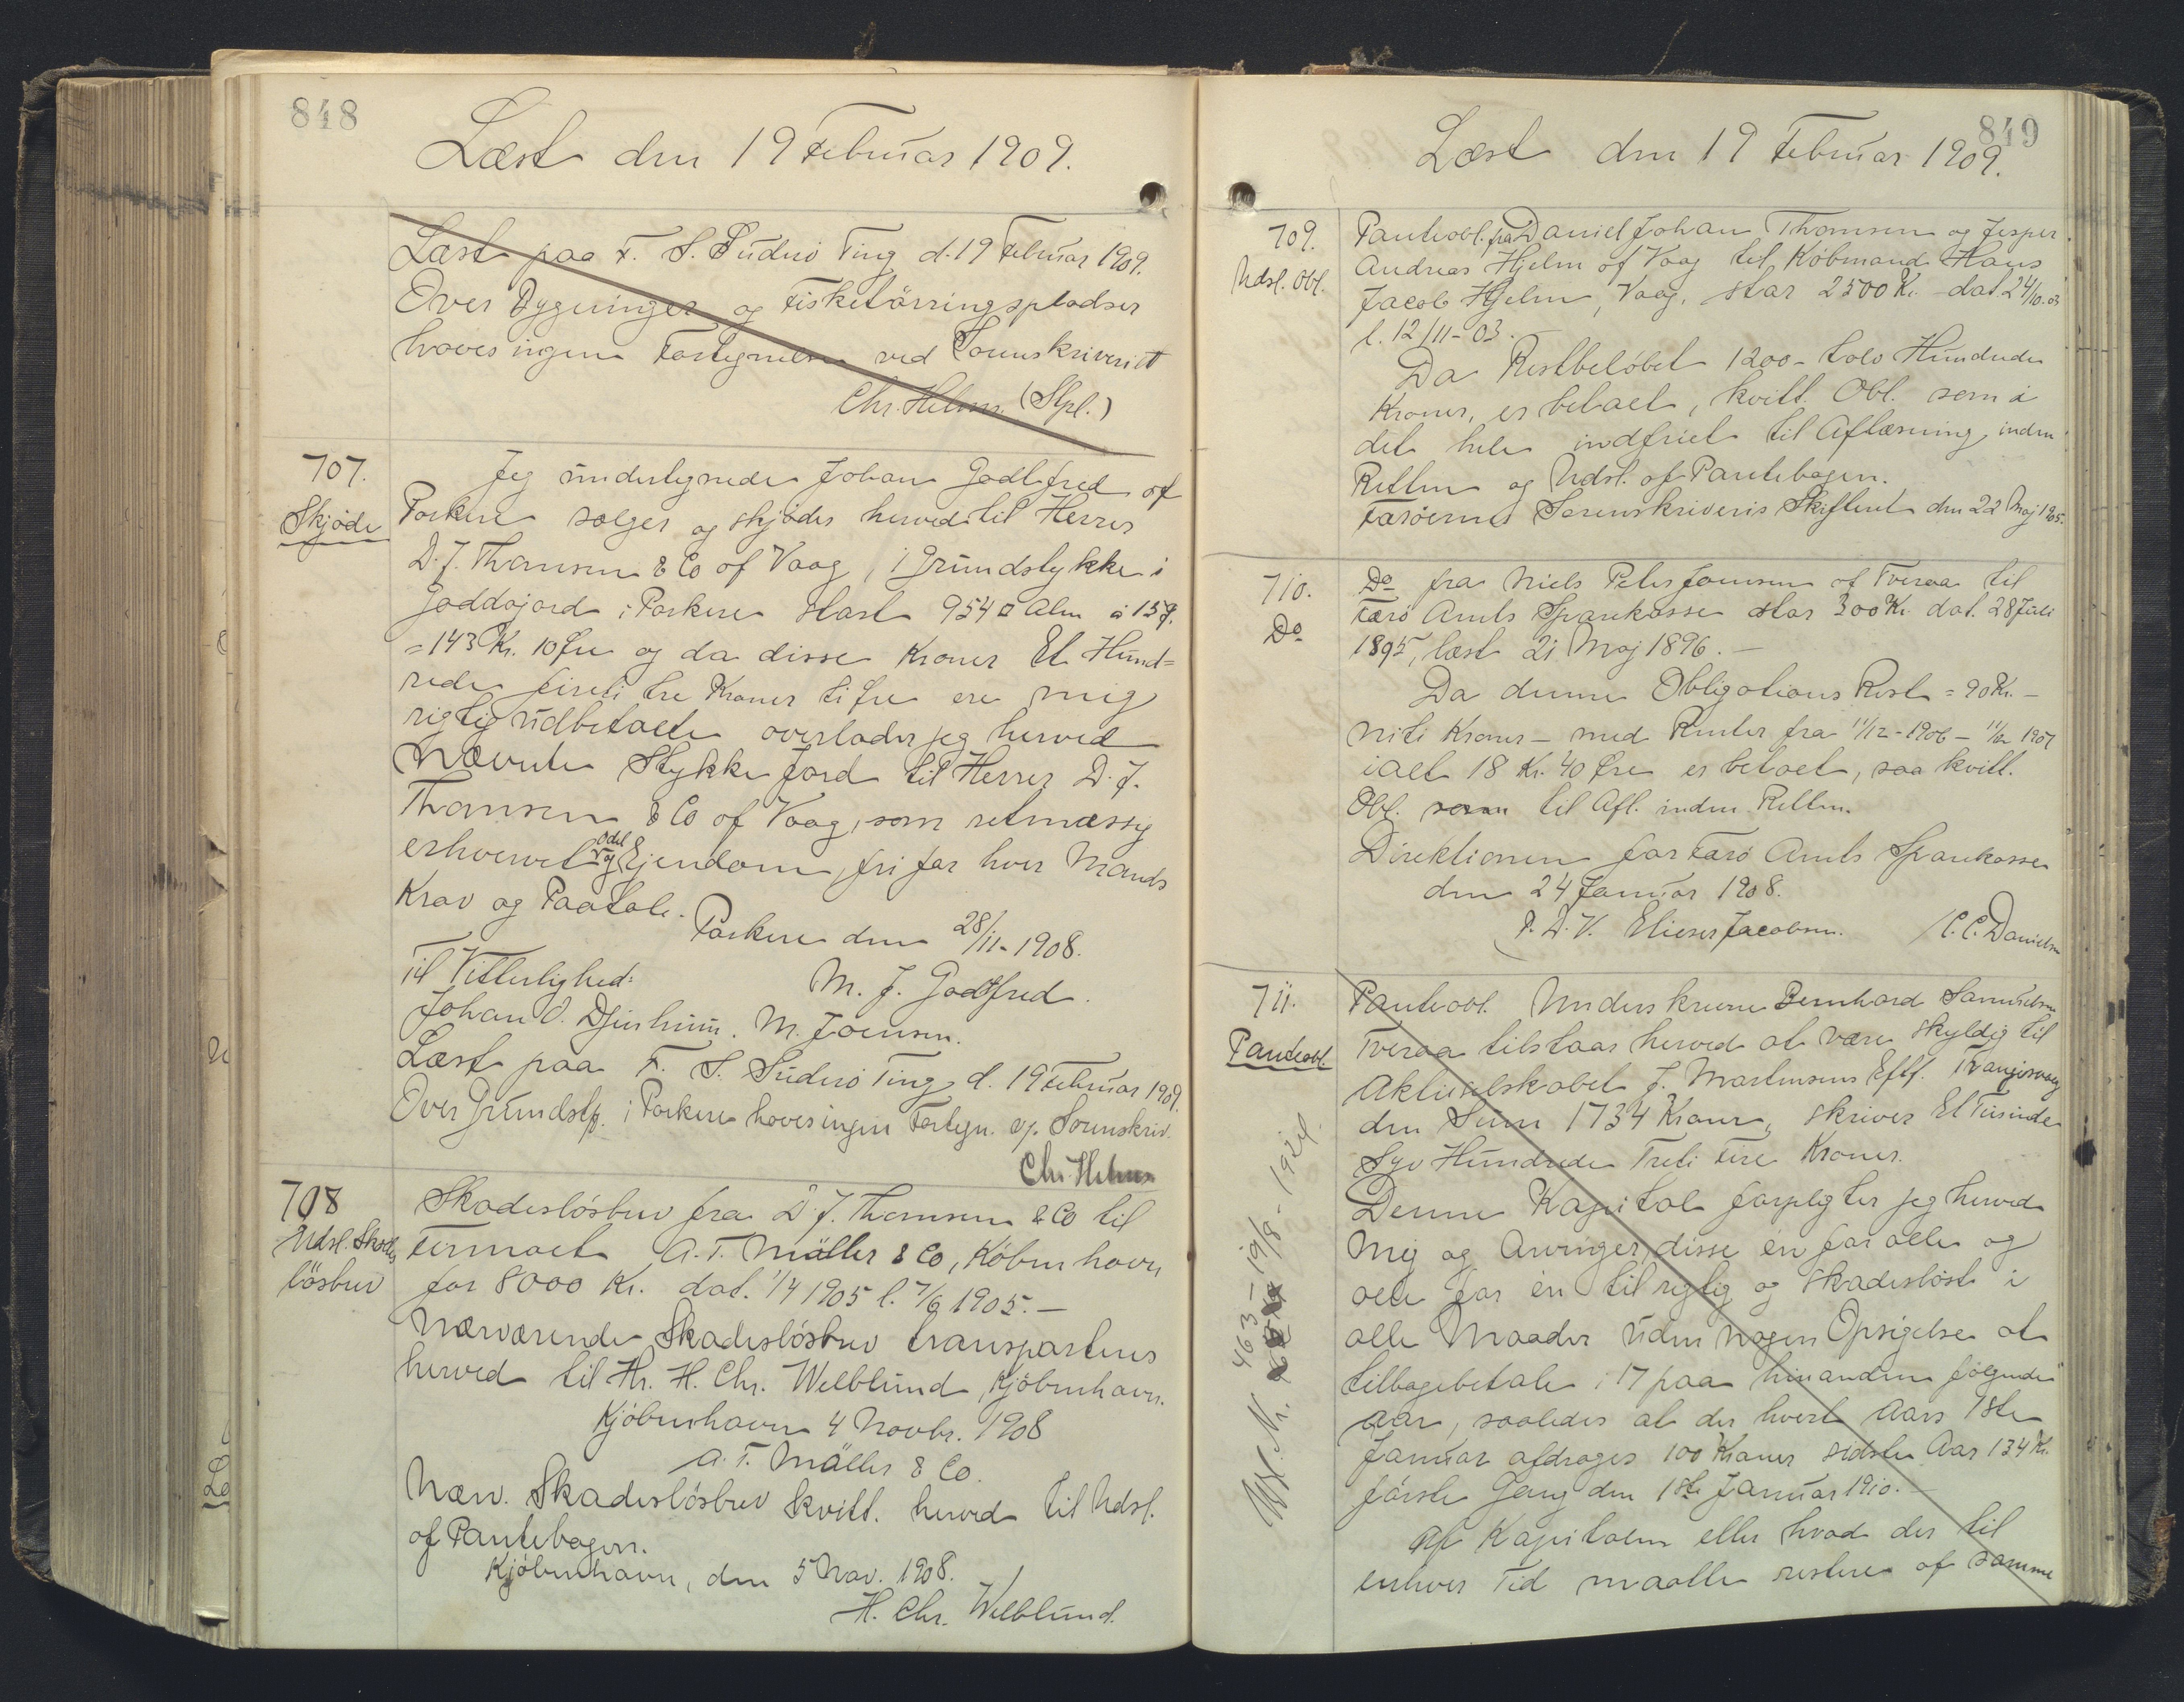 848
Læst den 19 Februar 1909.
Læst paa F. S. Suderø Ting d. 19 Februar 1909.
Over Bygninger og Fisketörringspladser
haves ingen Fortegnelse ved Sorenskriveriet
Chr. Helms. (Stpl.)
707.
Skjöde
Jeg undertegnede Johan Godtfred af
Porkere sælger og skjöder herved til Herrer
D. J. Thomsen & Co af Vaag, 1 Grundstykke i
Goddajord i Porkere stort 954 □ Alen à 15 Ø.
= 143 Kr. 10 Øre og da disse Kroner Et Hund=
rede fireti tre Kroner ti Øre ere mig
rigtig udbetalte overlader jeg herved
nævnte Stykke Jord til Herrer D. J.
Thomsen & Co af Vaag, som retmæssig
erhvervet og Odel Ejendom, fri for hver Mands
Krav og Paatale.
Porkere den 28/11-1908.
Til Vitterlighed:
M. J. Godtfred.
Johan D. Djurhuus. M. Joensen.
Læst paa F. S. Suderø Ting d. 19 Februar 1909.
Over Grundst. i Porkere haves ingen Fortegn. v. Sorenskriv.
Chr. Helms
708
Udsl. Skades
lösbrev
Skadeslösbrev fra D. J. Thomsen & Co til
Firmaet A. T. Möller & Co, Köbenhavn
for 8000 Kr. dat. 1/4 1905 l. 7/6 1905.—
Nærværende Skadeslösbrev transporteres
herved til Hr. H. Chr. Welblund, Kjöbenhavn.
Kjöbenhavn 4 Novbr. 1908
A. T. Möller & Co.
Nærv. Skadeslösbrev kvitt. herved til Udsl.
af Pantebogen.
Kjöbenhavn, den 5 Nov. 1908.
H. Chr. Welblund.
849
Læst den 19 Februar 1909.
709.
Udsl. Obl.
Panteobl. fra Daniel Johan Thomsen og Jesper
Andreas Hjelm af Vaag til Köbmand Hans
Jacob Hjelm, Vaag, stor 2500 Kr. dat. 24/10-03
l. 12/11-03.
Da Restbelöbet 1200 - tolv Hundrede
Kroner, er betalt, kvitt. Obl. som i
det hele indfriet til Aflæsning inden
Retten og Udsl. af Pantebogen.
Færöernes Sorenskriveris Skifteret den 22 Maj 1905.
710.
Do
Do fra Niels Peter Joensen af Tveraa til
Færö Amts Sparekasse stor 300 Kr. dat. 28 Juli
1895, læst 21 Maj 1896.—
Da denne Obligations Rest = 90 Kr.—
niti Kroner — med Renter fra 11/12-1906 — 11/12 1907
ialt 18 Kr. 40 Øre er betalt, saa kvitt.
Obl. til Afl. inden Retten.
Direktionen for Færö Amts Sparekasse
den 24 Januar 1908.
P. D. V. Elieser Jacobsen. C. C. Danielsen
711.
Panteobl
Panteobl. Underskrevne Bernhard Samuelsen
Tveraa tilstaar herved at være skyldig til
Aktieselskabet J. Mortensens Eftf. Trangisvaag
den Sum 1734 Kroner, skriver Et Tusinde
Syv Hundrede Treti Fire Kroner.
Denne Kapital forpligter jeg herved
Mig og Arvinger, disse én for alle og
alle for én til rigtig og skadeslöst i
alle Maader uden nogen Opsigelse at
tilbagebetale i 17 paa hinanden fölgende
Aar, saaledes at der hvert Aars 1ste
Januar afdrages 100 Kroner sidste Aar 134 Kr.
förste Gang den 1ste Januar 1910.—
Af Kapitalen eller hvad der til
enhver Tid maatte restere af samme
Nr. 463 - 19/8 - 1924.